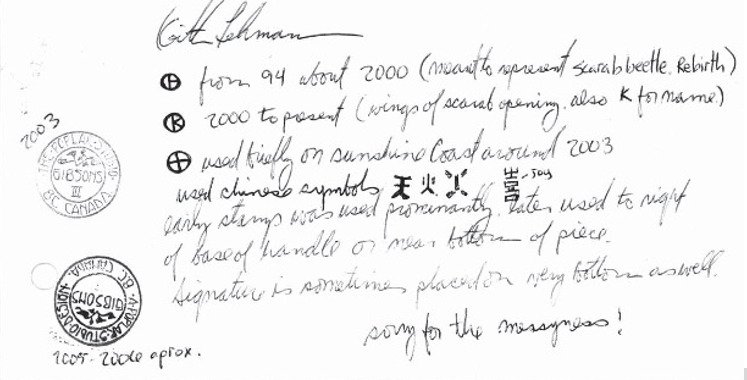 Keith Lehman
from 94 about 2000 (meant to represent scarab beetle. Rebirth)
K 2000 to present (wings of scarab opening. also K for name.)
used briefly on sunshine Coast around 2003
used chinese symbols 天 火 -joy
early stamps was used prominantly. later used to right
of base of handle or near bottom of piece.
signature is sometimes placed on very bottom as well.
sorry for the messyness!
2003
GIBSONS
III
B.C. CANADA
POPLAR STUDIO DESIGN
B.C. CANADA
GIBSONS
2005-2006 aprox.